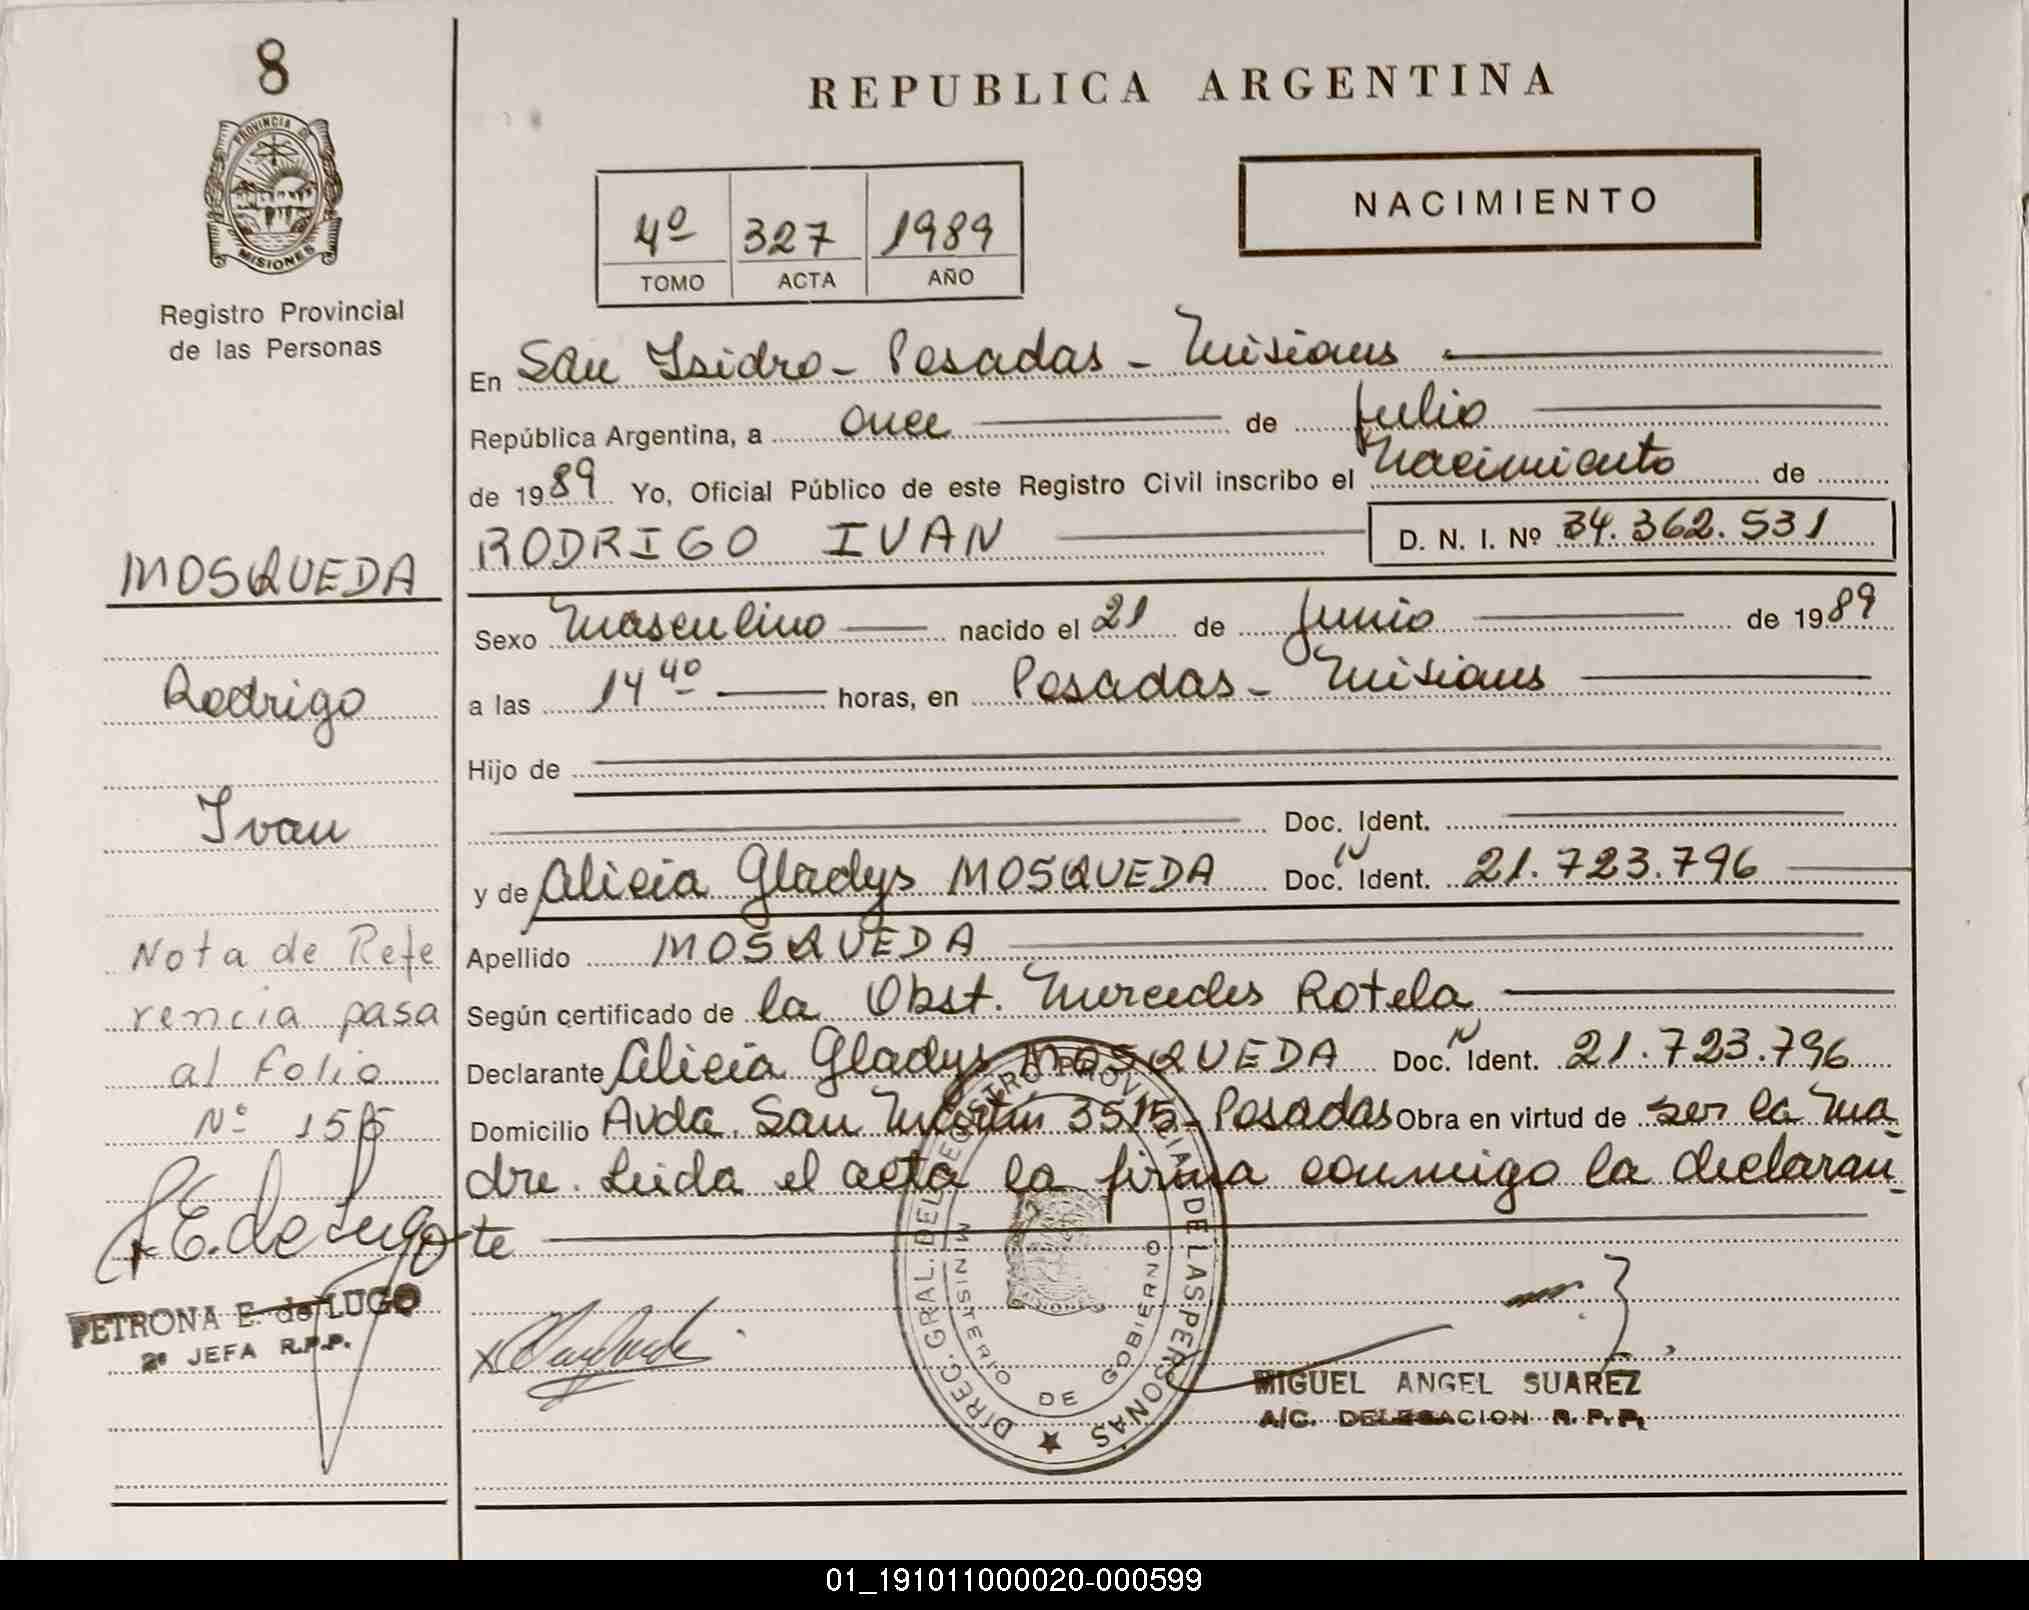 8
PROVINCIA DE
MISIONES
Registro Provincial
de las Personas
MOSQUEDA
Rodrigo
Ivan
Nota de Refe
rencia pasa
al folio
Nº 155
P.E. de Lugo
PETRONA E. de LUGO
2ª JEFA R.P.P.
REPUBLICA ARGENTINA
4º 327 1989
TOMO ACTA AÑO
NACIMIENTO
En San Isidro - Posadas - Misiones
República Argentina, a once de Julio
de 1989 Yo, Oficial Público de este Registro Civil inscribo el Nacimiento de
RODRIGO IVAN D. N. I. Nº 34.362.531
Sexo Masculino nacido el 21 de Junio de 1989
a las 14 40 horas, en Posadas - Misiones
Hijo de
Doc. Ident.
y de Alicia Gladys MOSQUEDA Doc. N Ident. 21.723.796
Apellido MOSQUEDA
Según certificado de la Obst. Mercedes Rotela
Declarante Alicia Gladys MOSQUEDA Doc. N Ident. 21.723.796
Domicilio Avda. San Martin 3515 - Posadas Obra en virtud de ser la ma-
dre. Leida el acta la firma conmigo la declaran-
te
DIREC. GRAL. DEL REGISTRO PROVINCIAL DE LAS PERSONAS
MINISTERIO DE GOBIERNO
MIGUEL ANGEL SUAREZ
A/C. DELEGACION R. P. P.
01_191011000020-000599